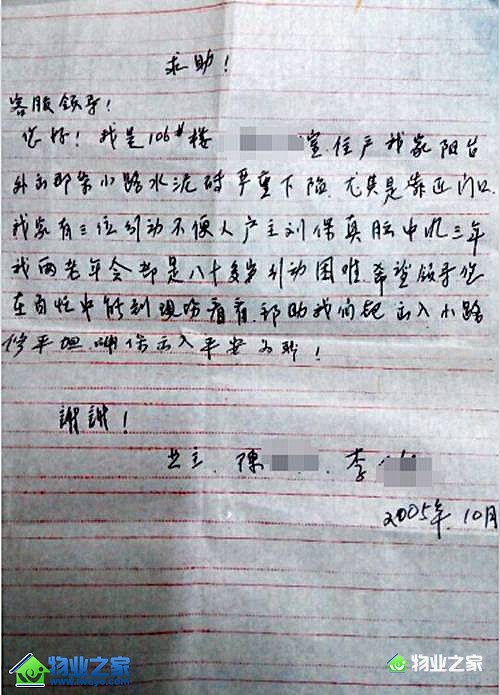 求助！
客服领导！
您好！我是106#楼 室住户我家阳台
外面那条小路水泥砖严重下陷.尤其是靠近门口.
我家有三位行动不便人户主刘保真脑中风三年
我两老年会都是八十多岁行动困难.希望领导您
在百忙中能到现场看看.帮助我们把出入小路
修平坦.确保出入平安为盼！
謝謝！
业主.陳 .李
2005年.10月
物业之家
物业之家